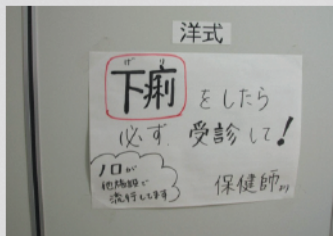 洋式
げり
下痢をしたら
必ず受診して!
ノロが
他施設で
流行してます
保健師より